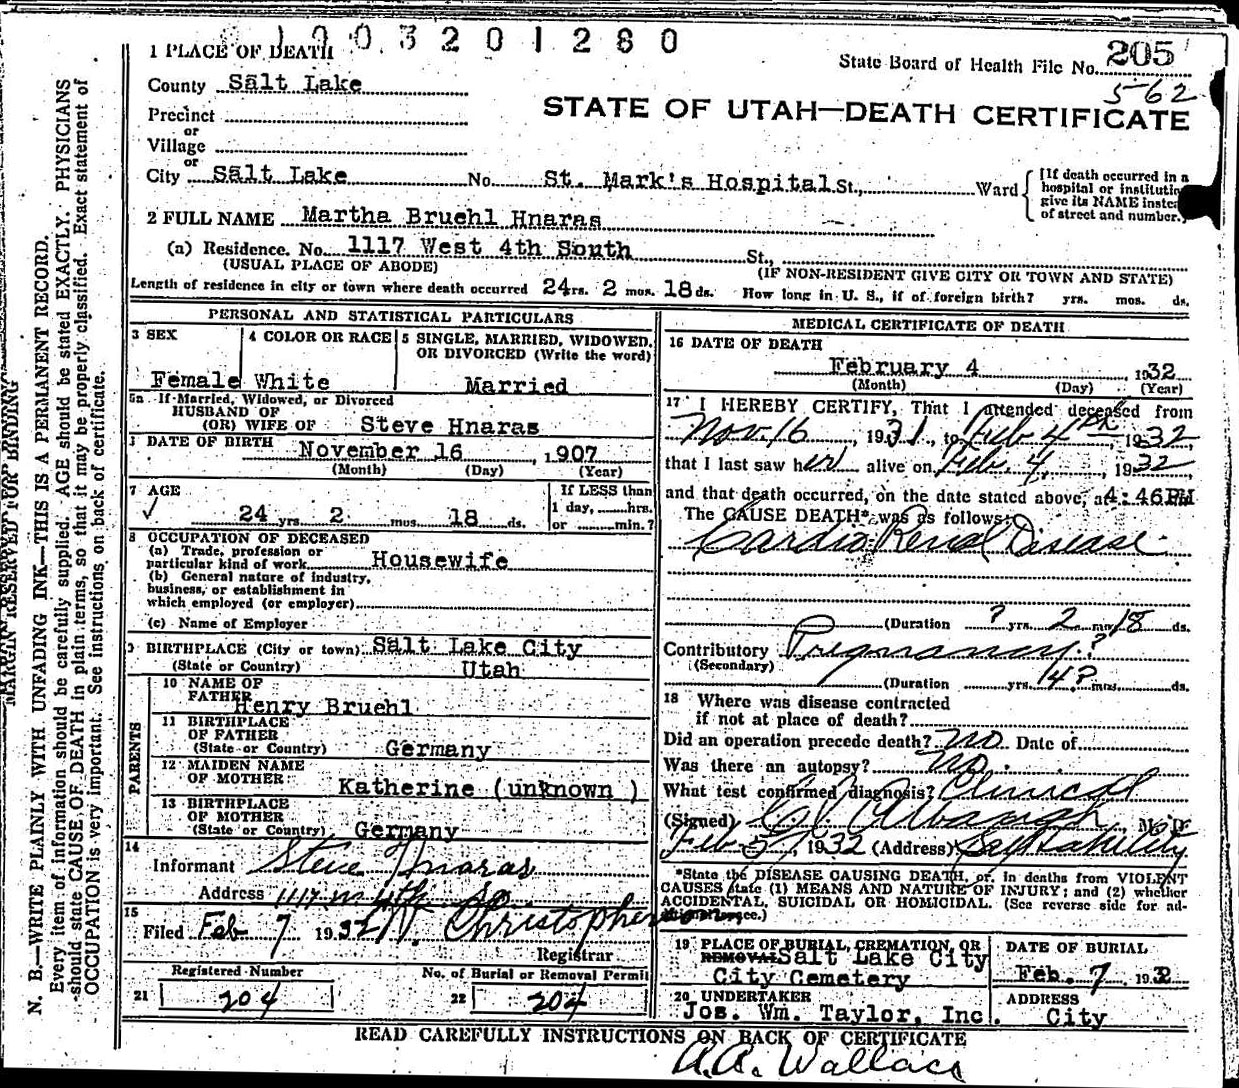 1003201280
State Board of Health File No. 205
562
1 PLACE OF DEATH
County Salt Lake
STATE OF UTAH—DEATH CERTIFICATE
Precinct
or
Village
or
City Salt Lake No. St. Mark's Hospital St., Ward
[If death occurred in a
hospital or institution
give its NAME instead
of street and number.]
2 FULL NAME Martha Bruehl Hnaras
(a) Residence. No. 1117 West 4th South St.,
(USUAL PLACE OF ABODE) (IF NON-RESIDENT GIVE CITY OR TOWN AND STATE)
Length of residence in city or town where death occurred 24rs. 2 mos. 18 ds. How long in U. S., if of foreign birth? yrs. mos. ds.
PERSONAL AND STATISTICAL PARTICULARS
3 SEX
Female
4 COLOR OR RACE
White
5 SINGLE, MARRIED, WIDOWED,
OR DIVORCED (Write the word)
Married
5a If Married, Widowed, or Divorced
HUSBAND OF
(OR) WIFE OF Steve Hnaras
DATE OF BIRTH November 16, 1907
(Month) (Day) (Year)
7 AGE
24 yrs. 2 mos. 18 ds.
If LESS than
1 day, hrs.
or min.?
8 OCCUPATION OF DECEASED
(a) Trade, profession or
particular kind of work Housewife
(b) General nature of industry,
business, or establishment in
which employed (or employer)
(c) Name of Employer
9 BIRTHPLACE (City or town) Salt Lake City
(State or Country) Utah
PARENTS
10 NAME OF
FATHER Henry Bruehl
11 BIRTHPLACE
OF FATHER
(State or Country) Germany
12 MAIDEN NAME
OF MOTHER Katherine (unknown )
13 BIRTHPLACE
OF MOTHER
(State or Country) Germany
14
Informant Steve Hnaras
Address 1117 W 4th So
15
Filed Feb 7 1932 Christopherson
Registrar
Registered Number
21 204
No. of Burial or Removal Permit
22 204
MEDICAL CERTIFICATE OF DEATH
16 DATE OF DEATH
February 4, 1932
(Month) (Day) (Year)
17 I HEREBY CERTIFY, That I attended deceased from
Nov. 16, 1931, to Feb 4th 1932
that I last saw her alive on Feb. 4, 1932
and that death occurred, on the date stated above, at 4:46PM
The CAUSE DEATH* was as follows:
Cardio Renal Disease
(Duration ? yrs. 2 mos 18 ds.
Contributory Pregnancy?
(Secondary)
(Duration yrs. mos. ds.
18 Where was disease contracted
if not at place of death?
Did an operation precede death? No Date of
Was there an autopsy? No.
What test confirmed diagnosis? Clinical
(Signed) Albaugh, M. D.
Feb 5, 1932 (Address) Salt Lake City
*State the DISEASE CAUSING DEATH, or, in deaths from VIOLENT
CAUSES state (1) MEANS AND NATURE OF INJURY; and (2) whether
ACCIDENTAL, SUICIDAL OR HOMICIDAL. (See reverse side for ad-
ditional space.)
19 PLACE OF BURIAL, CREMATION, OR
REMOVAL Salt Lake City
City Cemetery
DATE OF BURIAL
Feb. 7 1932
20 UNDERTAKER
Jos. Wm. Taylor, Inc.
ADDRESS
City
READ CAREFULLY INSTRUCTIONS ON BACK OF CERTIFICATE
A.A. Wallace
MARGIN RESERVED FOR BINDING
N. B.—WRITE PLAINLY WITH UNFADING INK—THIS IS A PERMANENT RECORD.
Every item of information should be carefully supplied. AGE should be stated EXACTLY. PHYSICIANS
should state CAUSE OF DEATH in plain terms, so that it may be properly classified. Exact statement of
OCCUPATION is very important. See instructions on back of certificate.